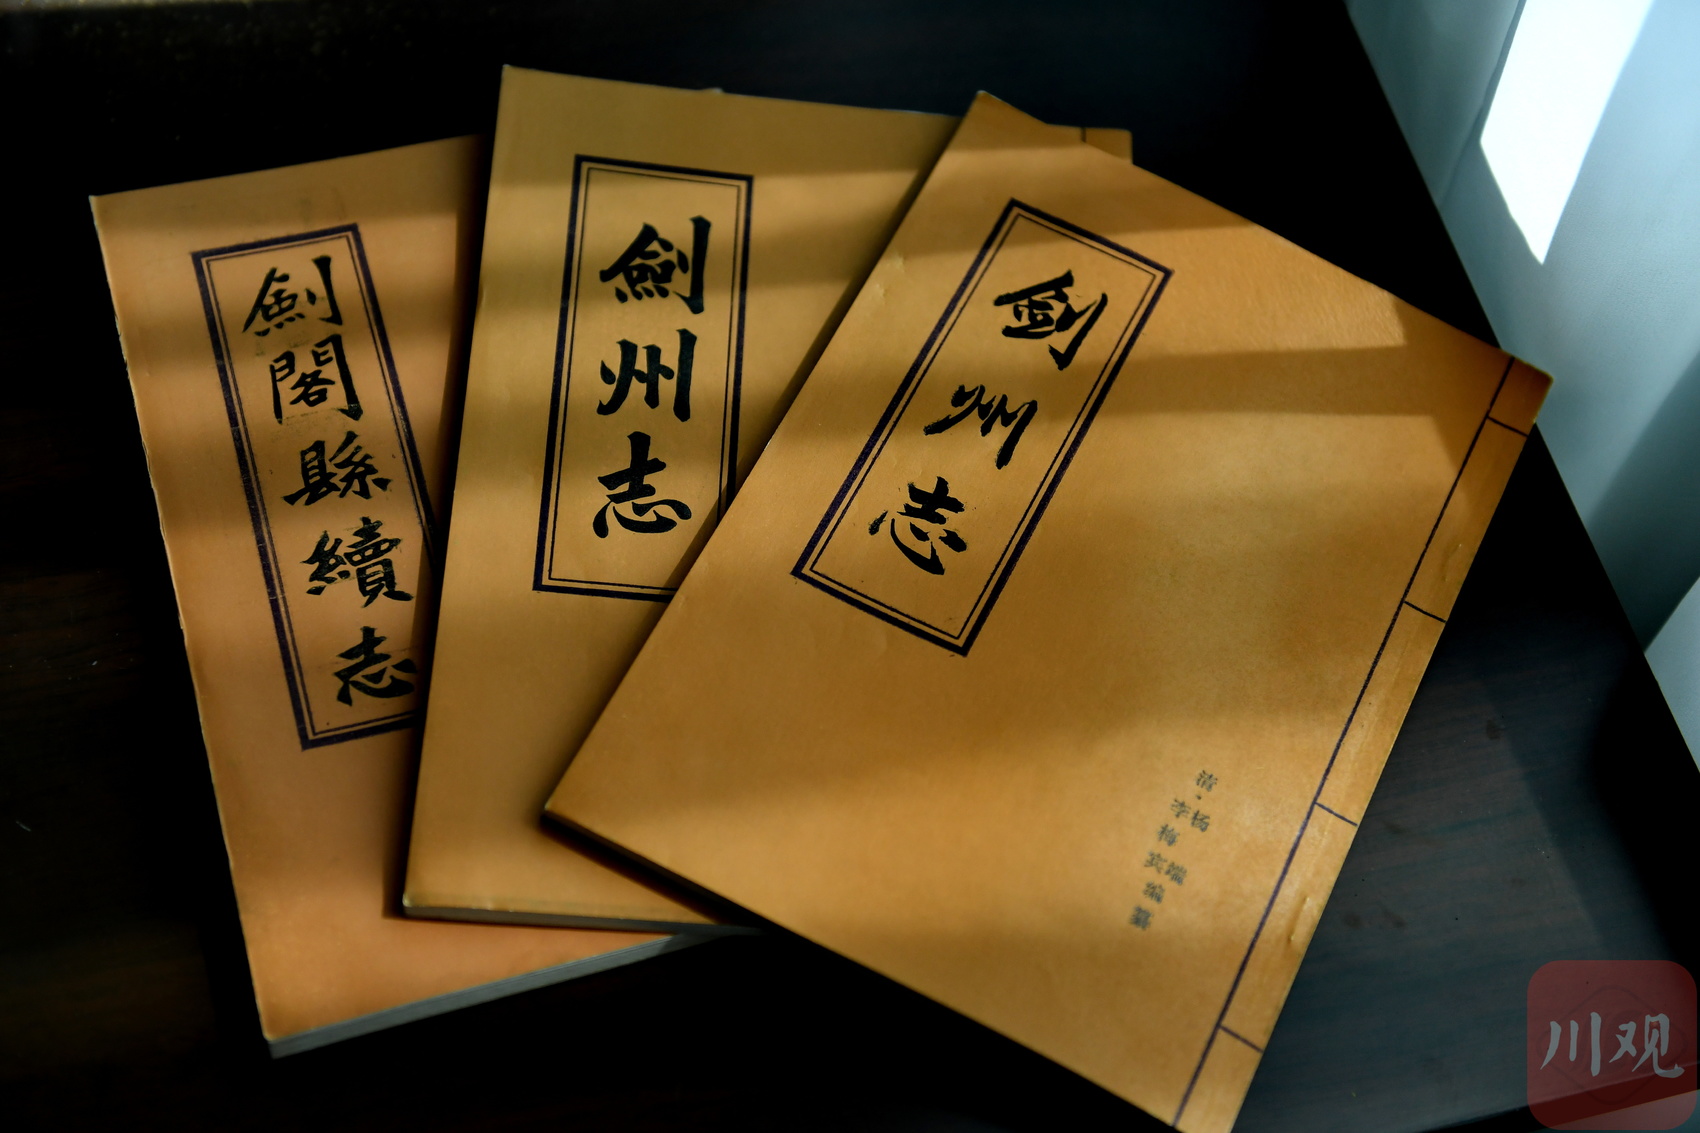 劍閣縣續志
劍州志
劍州志
清·杨端
李梅宾编纂
川观